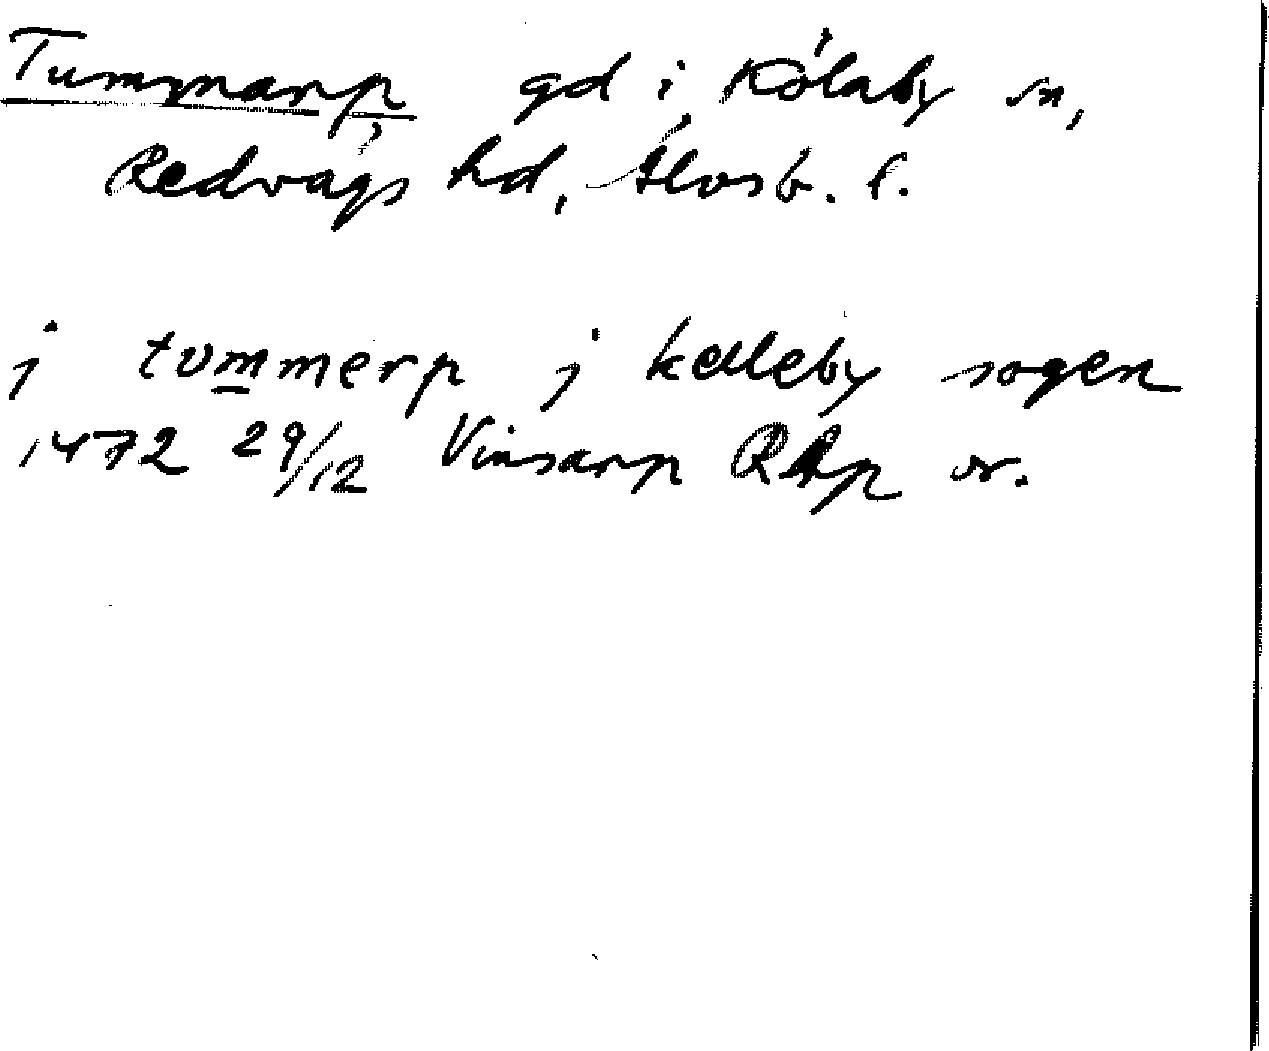 Tummarp gd i Kölaby sn,
Redvägs hd, Älvsb. l.
j tvmmerp j kelleby sogen
1472 29/12 Vinsarp RAp or.